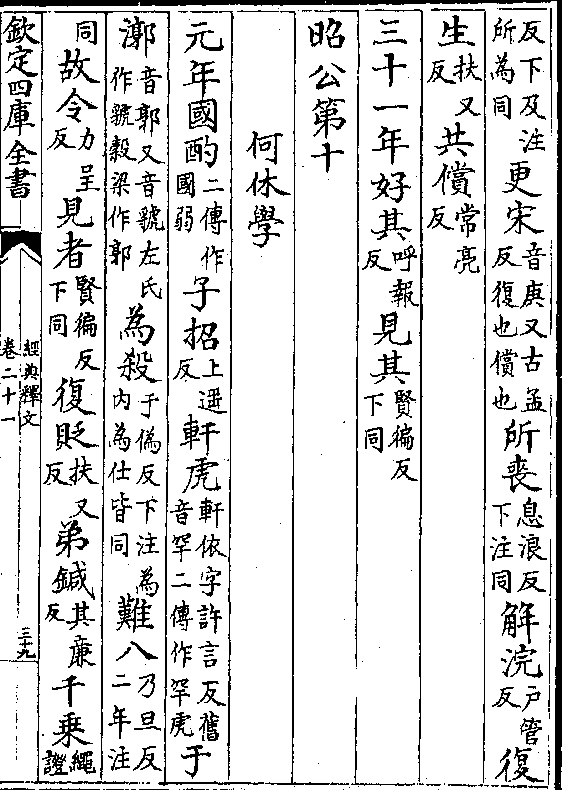 反下及注所為同更宋音庚又古孟反復也償也所喪息浪反下注同解浣户管反復
生扶又反共償常亮反
三十一年好其呼報反見其賢徧反下同
昭公第十
何休學
元年國酌二傳作國弱子招上遥反軒虎軒依字許言反舊音罕二傳作罕虎于
漷音郭又音虢左氏作虢穀梁作郭為殺于偽反下注為内為仕皆同難八乃旦反二年注
同故令力呈反見者賢徧反下同復貶扶又反弟鍼其亷反千乗繩證
欽定四庫全書
經典釋文
卷二十一
三十九